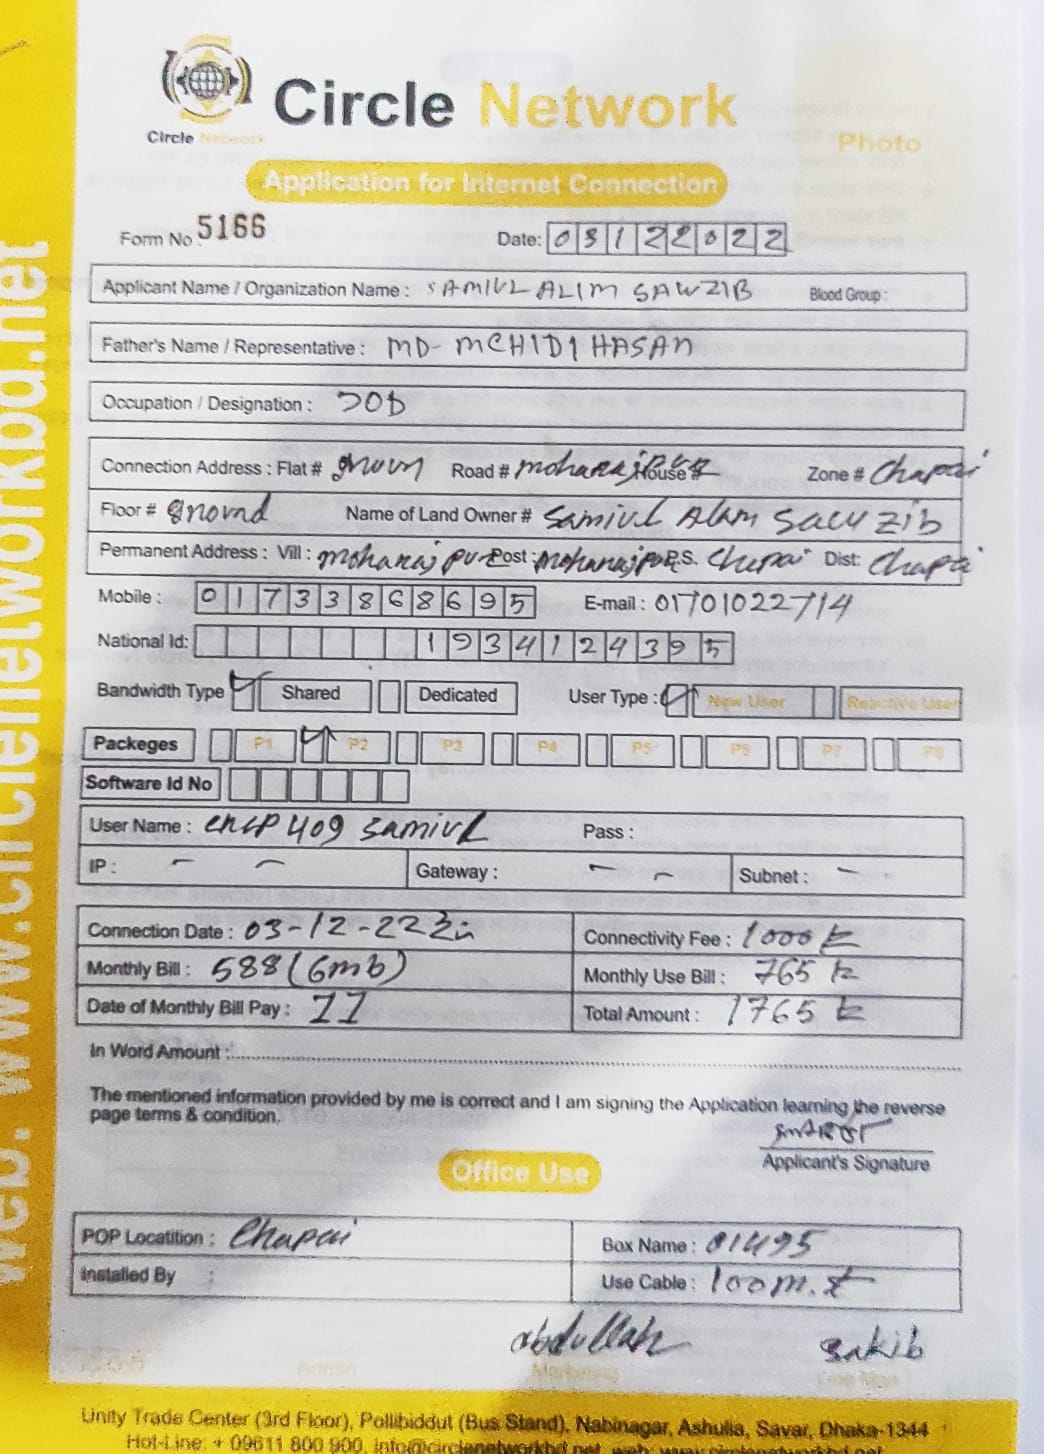 Circle Network
Circle Network
Photo
Application for Internet Connection
Form No. 5166
Date: 03122022
Applicant Name / Organization Name : SAMIUL ALIM SAWZIB Blood Group :
Father's Name / Representative : MD- MEHIDI HASAN
Occupation / Designation : JOB
Connection Address : Flat # Road # House # Zone # Chapai
Floor # ground Name of Land Owner # Samiul Alam Sawzib
Permanent Address : Vill : moharajpur Post : Moharajpur P.S. Chapai Dist: Chapai
Mobile : 01733868695 E-mail : 01701022714
National Id: 1934124395
Bandwidth Type Shared Dedicated User Type : New User Reactive User
Packeges P1 P2 P3 P4 P5 P6 P7 P8
Software Id No
User Name : 409 samiul Pass :
IP : - - Gateway : - - Subnet : - -
Connection Date : 03-12-22 Connectivity Fee : 1000
Monthly Bill : 588 (6mb) Monthly Use Bill : 765
Date of Monthly Bill Pay : 11 Total Amount : 1765
In Word Amount :
The mentioned information provided by me is correct and I am signing the Application learning the reverse
page terms & condition.
Applicant's Signature
Office Use
POP Locatition : Chapai Box Name : 01495
Installed By : Use Cable : 100m.t
abdullah sakib
Admin Marketing Line Man
Unity Trade Center (3rd Floor), Pollibiddut (Bus Stand), Nabinagar, Ashulia, Savar, Dhaka-1344
Hot-Line: + 09611 800 900, info@circlenetworkbd.net, web: www.circlenetworkbd.net
web: www.circlenetworkbd.net